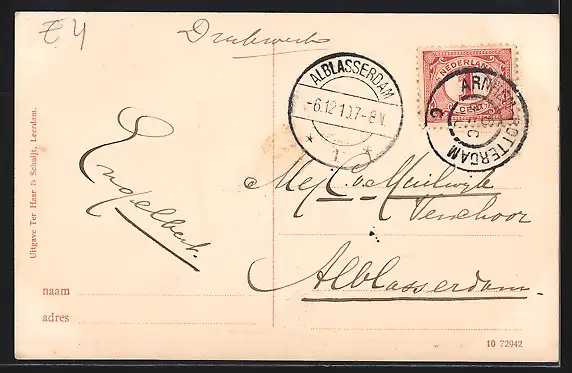 Drukwerk
ALBLASSERDAM
-6.12.10.7-8V
* 1 *
NEDERLAND
1
CENT
ARNHEM-ROTTERDAM
C
Engelbert.
Mej. C. v. Meilwyk
Alblasserdam.
Uitgave Ter Haar & Schuijt, Leerdam.
naam
adres
10 72942